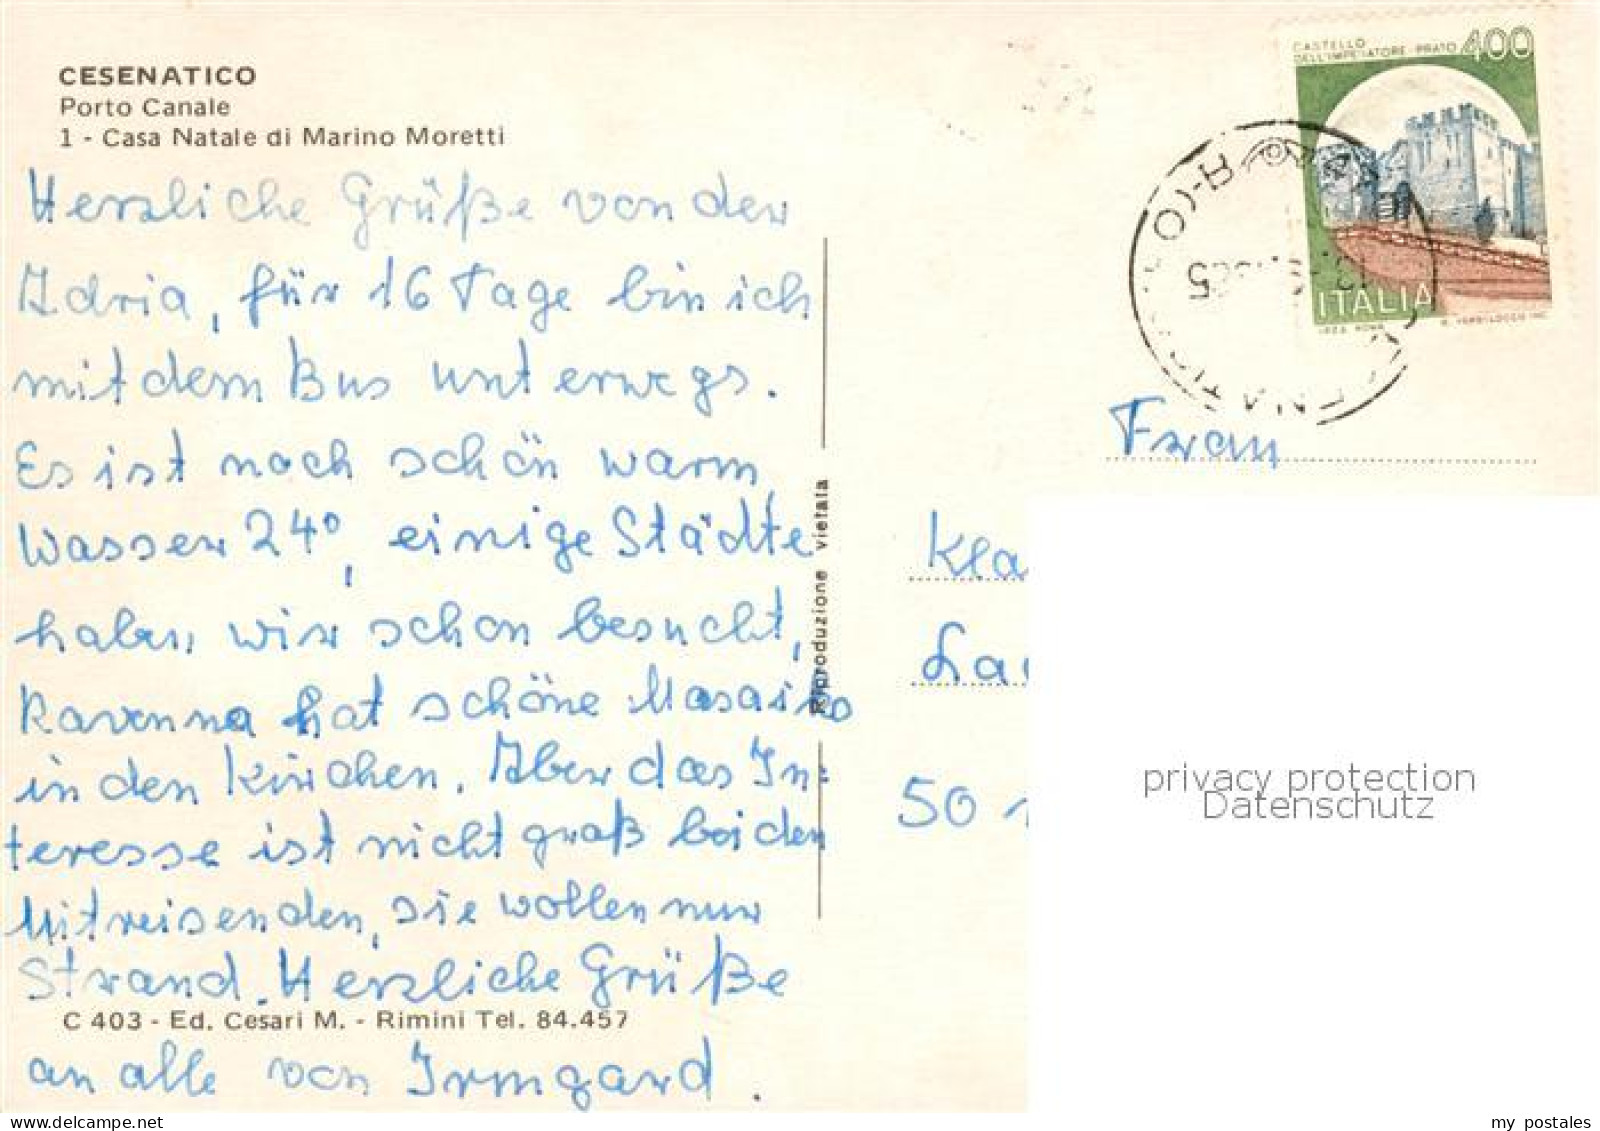 CESENATICO
Porto Canale
1 - Casa Natale di Marino Moretti
Herzliche Grüße von der
Adria, für 16 Tage bin ich
mit dem Bus unterwegs.
Es ist noch schön warm
Wasser 24°, einige Städte
haben wir schon besucht,
Ravenna hat schöne Mosaiko
in den Kirchen. Aber das In-
teresse ist nicht groß bei den
Mitreisenden, sie wollen nur
Strand. Herzliche Grüße
C 403 - Ed. Cesari M. - Rimini Tel. 84.457
an alle von Irmgard.
Riproduzione vietata
CASTELLO
DELL'IMPERATORE - PRATO 400
ITALIA
Frau
Kla
La
50 1
privacy protection
Datenschutz
my postales